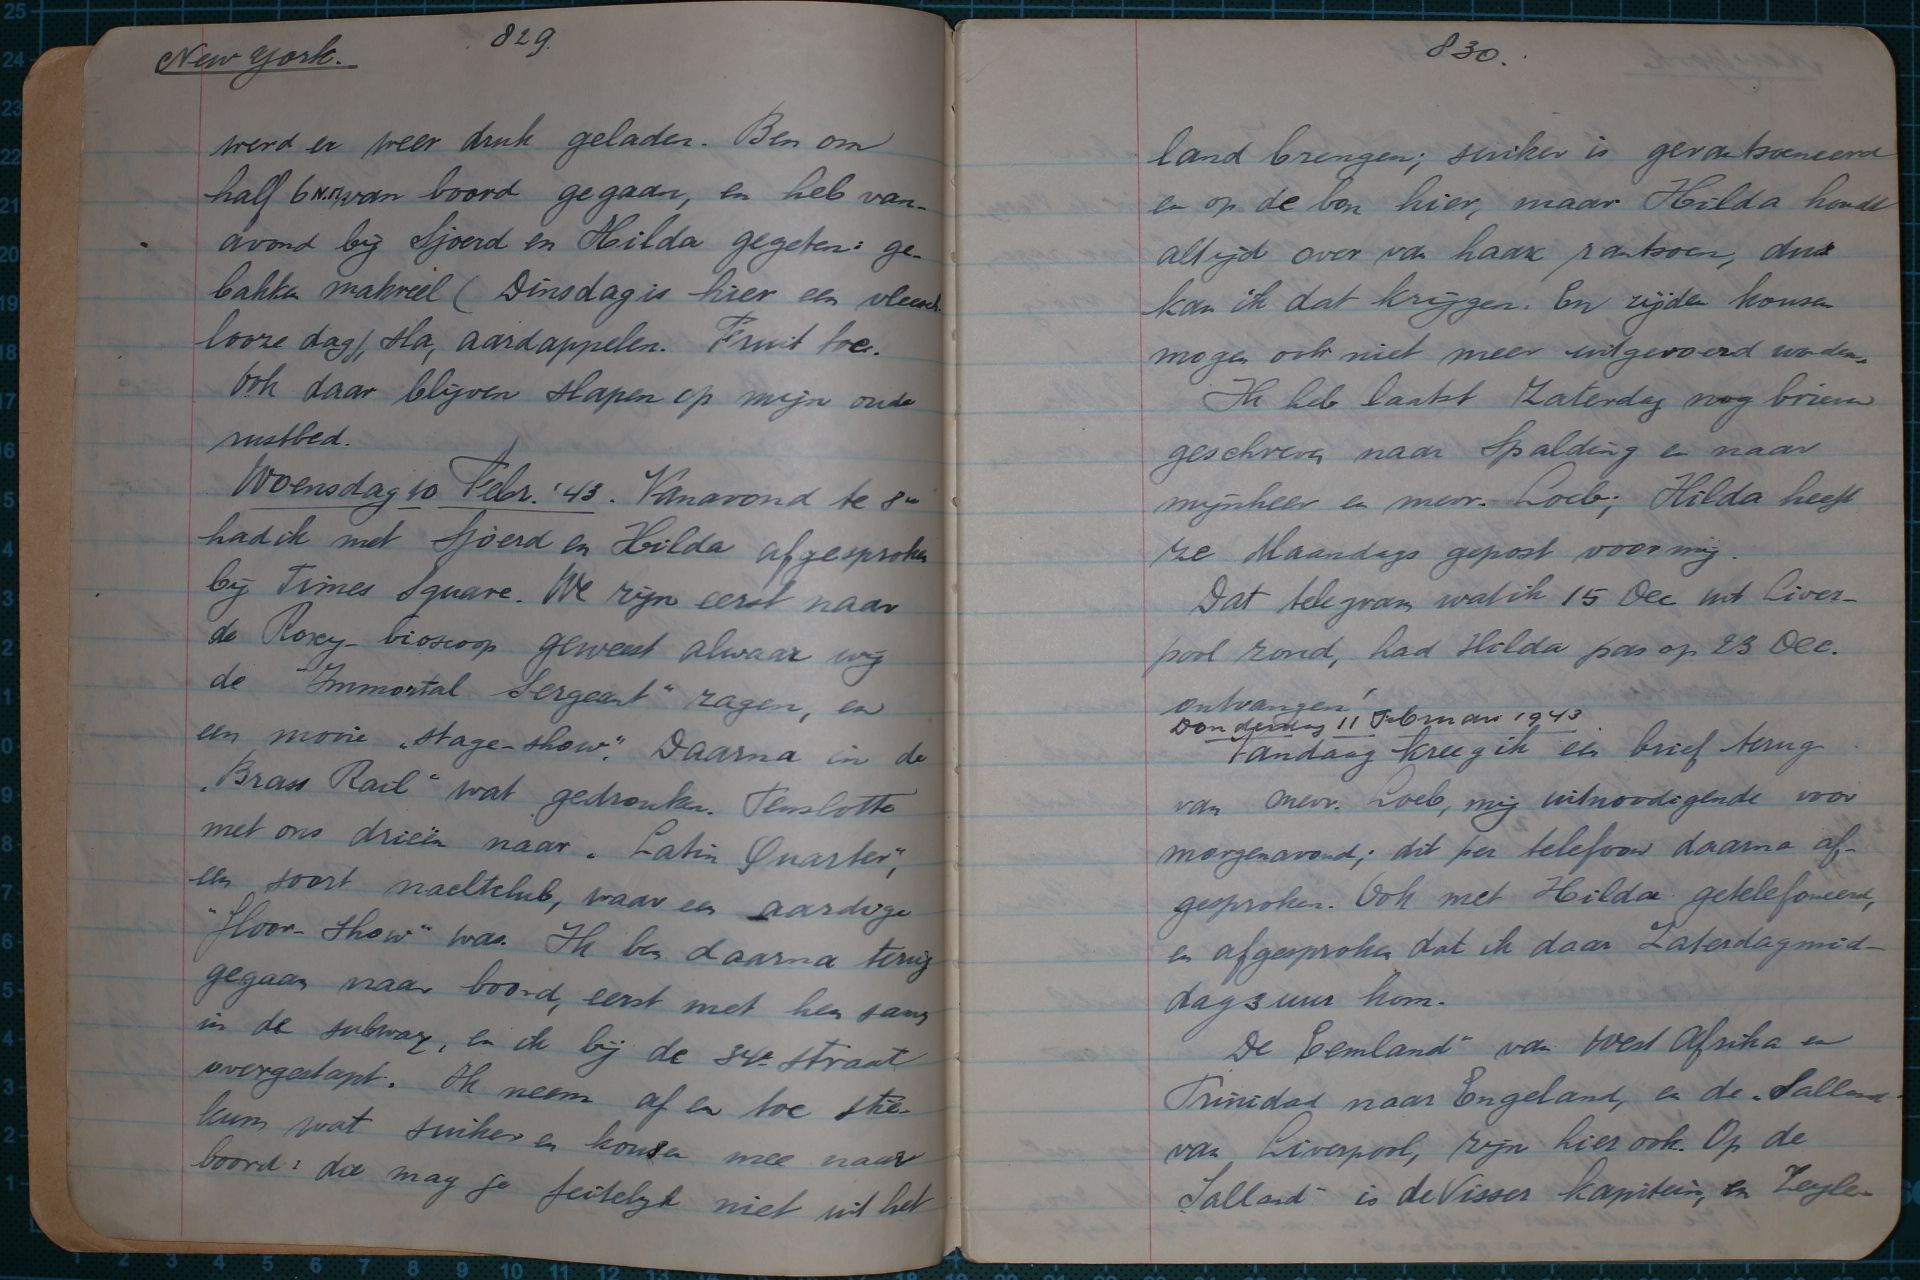 New York.
829.
werd er weer druk geladen. Ben om
half 6 N.M. van boord gegaan, en heb van-
avond bij Sjoerd en Hilda gegeten: ge-
bakken makreel (Dinsdag is hier een vleesch-
looze dag), sla, aardappelen. Fruit toe.
Ook daar blijven slapen op mijn oude
rustbed.
Woensdag 10 Febr. '43. Vanavond te 8 u
had ik met Sjoerd en Hilda afgesproken
bij Times Square. We zijn eerst naar
de Roxy-bioscoop geweest alwaar wij
de "Immortal Sergeant" zagen, en
een mooie „stage-show". Daarna in de
„Brass Rail" wat gedronken. Tenslotte
met ons drieën naar „Latin Quarter",
een soort nachtclub, waar een aardige
"floor-show" was. Ik ben daarna terug
gegaan naar boord, eerst met hen saam
in de subway, en ik bij de 34e straat
overgestapt. Ik neem af en toe stie-
kum wat suiker en kousen mee naar
boord: die mag je feitelijk niet uit het
830.
land brengen; suiker is gerantsoeneerd
en op de bon hier, maar Hilda houdt
altijd over van haar rantsoen, dus
kan ik dat krijgen. En zijden kousen
mogen ook niet meer uitgevoerd worden.
Ik heb laatst Zaterdag nog brieven
geschreven naar Spalding en naar
mijnheer en mevr. Loeb; Hilda heeft
ze Maandags gepost voor mij.
Dat telegram wat ik 15 Dec uit Liver-
pool zond, had Hilda pas op 23 Dec.
ontvangen!
Donderdag 11 Februari 1943
Vandaag kreeg ik een brief terug
van mevr. Loeb, mij uitnoodigende voor
morgenavond; dit per telefoon daarna af-
gesproken. Ook met Hilda getelefoneerd,
en afgesproken dat ik daar Zaterdagmid-
dag 3 uur kom.
De Eemland" van West Afrika en
Trinidad naar Engeland, en de „Salland"
van Liverpool, zijn hier ook. Op de
„Salland" is de Visser kapitein, en